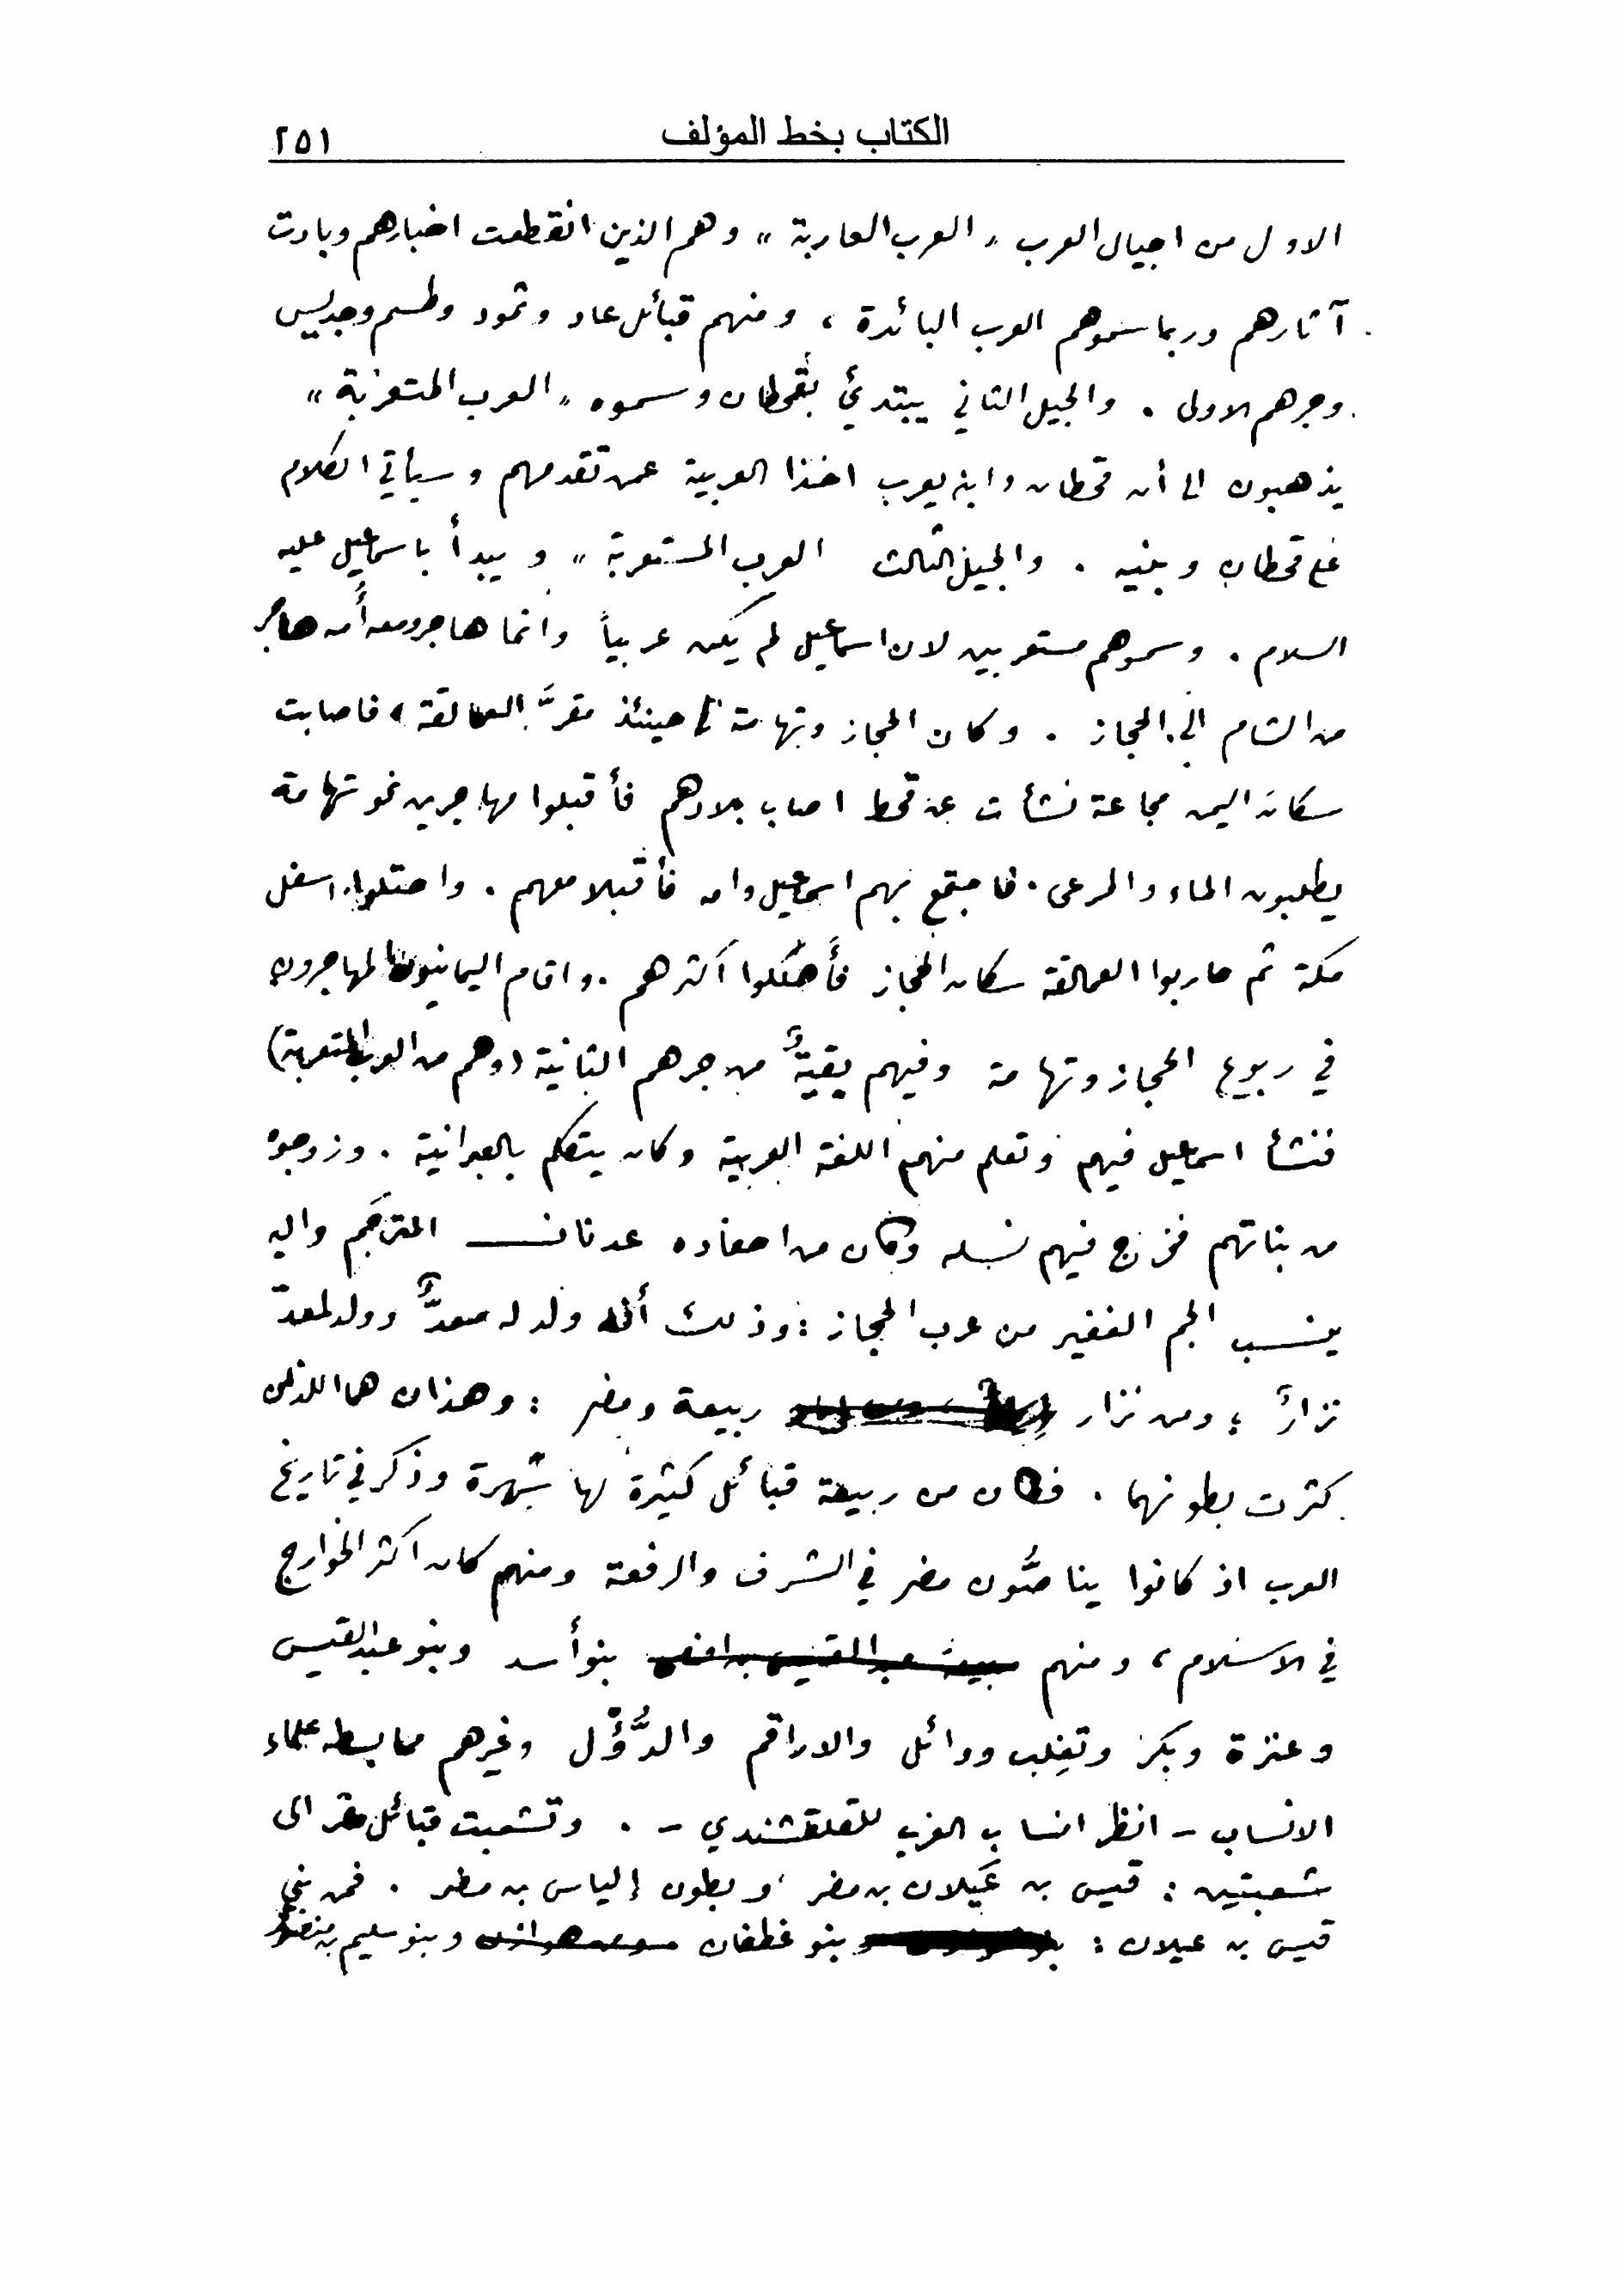 الكتاب بخط المؤلف ٢٥١
الاول من اجيال العرب « العرب العاربة » وهم الذين انقطعت اخبارهم وبادت
آثارهم وربما سموهم العرب البائدة ، ومنهم قبائل عاد وثمود وطسم وجديس
وجرهم الاولى . والجيل الثاني يبتدئ بقحطان وسموه « العرب المتعربة »
يذهبون الى أن قحطان وابنه يعرب اخذا العربية عمن تقدمهم وسيأتي الكلام
على قحطان وبنيه . والجيل الثالث العرب المستعربة » ويبدأ باسماعيل عليه
السلام . وسموهم مستعربين لان اسماعيل لم يكن عربياً وانما هاجر ومعه أُمه هاجر
من الشام الى الحجاز . وكان الحجاز وتهامة حينئذ مقرَّ العمالقة ، فاصابت
سكان اليمن مجاعة نشأت عن قحط اصاب بلادهم فأقبلوا مهاجرين نحو تهامة
يطلبون الماء والمرعى . فاجتمع بهم اسماعيل وامه فأقبلا معهم . واحتلوا اسفل
مكة ثم حاربوا العمالقة سكان الحجاز فأَهلكوا أكثرهم . واقام اليمانيون المهاجرون
في ربوع الحجاز وتهامة وفيهم بقيةٌ من جرهم الثانية (وهم من العرب المتعربة)
فنشأ اسماعيل فيهم وتعلم منهم اللغة العربية وكان يتكلم بالعبرانية . وزوجوه
من بناتهم فخرج فيهم نسله وكان من احفاده عدنان المترجَم واليه
ينسب الجم الغفير من عرب الحجاز : وذلك أنه ولد له معدٌّ وولد لمعدّ
نزارٌ ؛ ومن نزار ربيعة ومضر : وهذان هما اللذان
كثرت بطونهما . فكان من ربيعة قبائل كثيرة لها شهرة وذكر في تاريخ
العرب اذ كانوا يناصُّون مضر في الشرف والرفعة ومنهم كان اكثر الخوارج
في الاسلام ، ومنهم بنو أسد وبنو عبد القيس
وعنزة وبكر وتغلِب ووائل والاراقم والدُّؤَل وغيرهم مما بسطه علماء
الانساب - انظر انساب العرب للقلقشندي - . وتشعبت قبائل مضر الى
شعبتين : قيس بن عَيلان بن مضر ، وبطون إلياس بن مضر . فمن بني
قيس بن عيلان : بنو غطفان وبنو سليم بن منصور